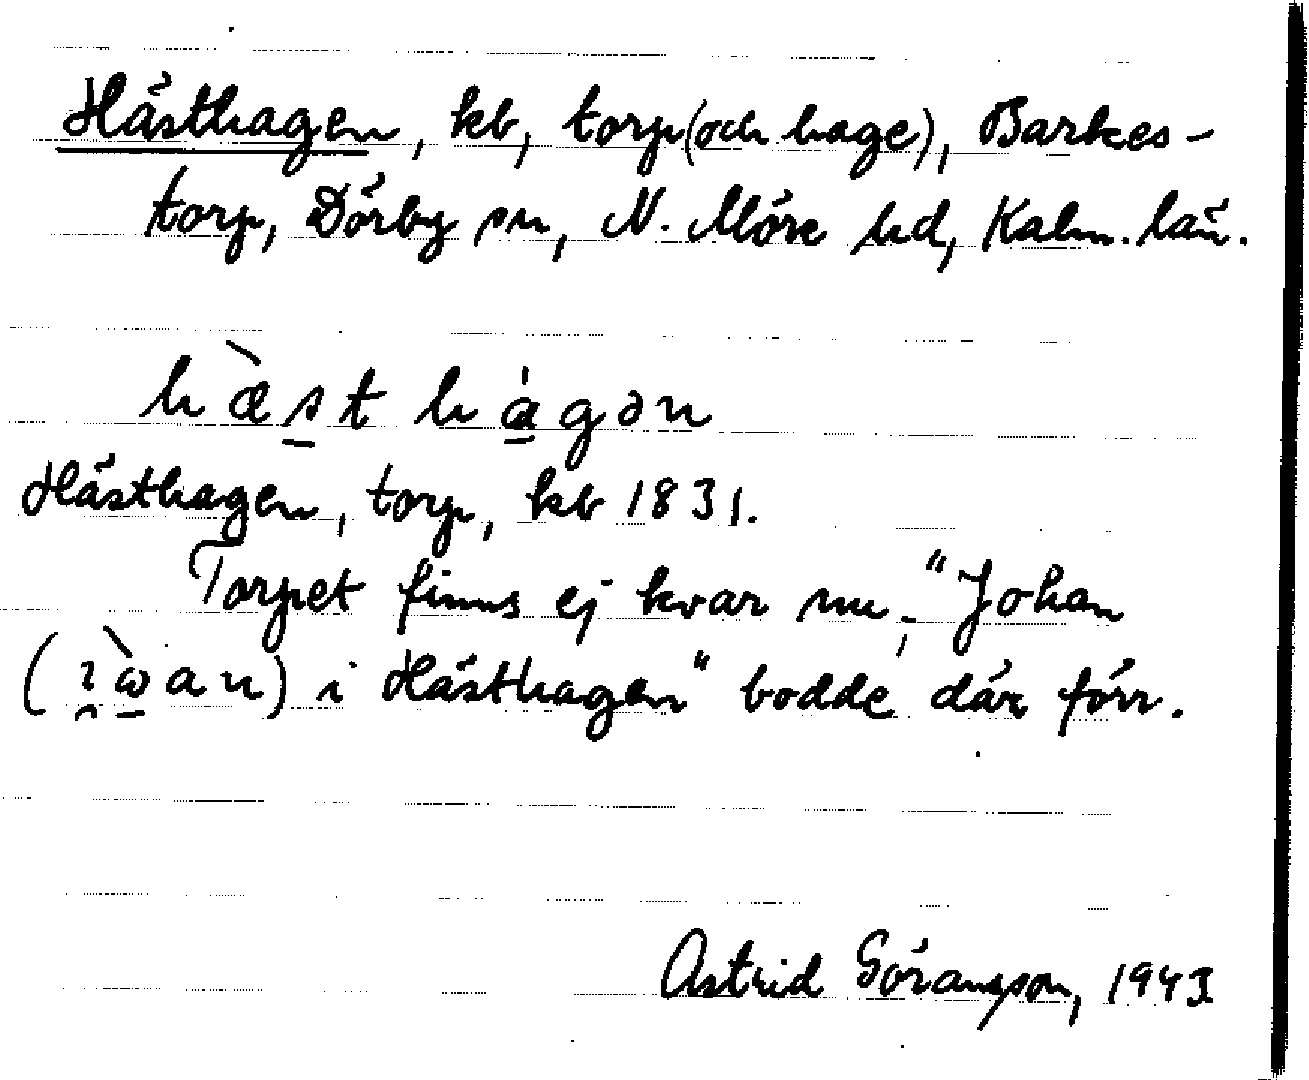 Hästhagen, kb, torp (och hage), Barkes-
torp, Dörby sn, N. Möre hd, Kalm. län.
hæ̀sthágən
Hästhagen, torp, kb 1831.
Torpet finns ej kvar nu; "Johan
(ɿὼan) i Hästhagen" bodde där förr.
Astrid Göransson, 1943